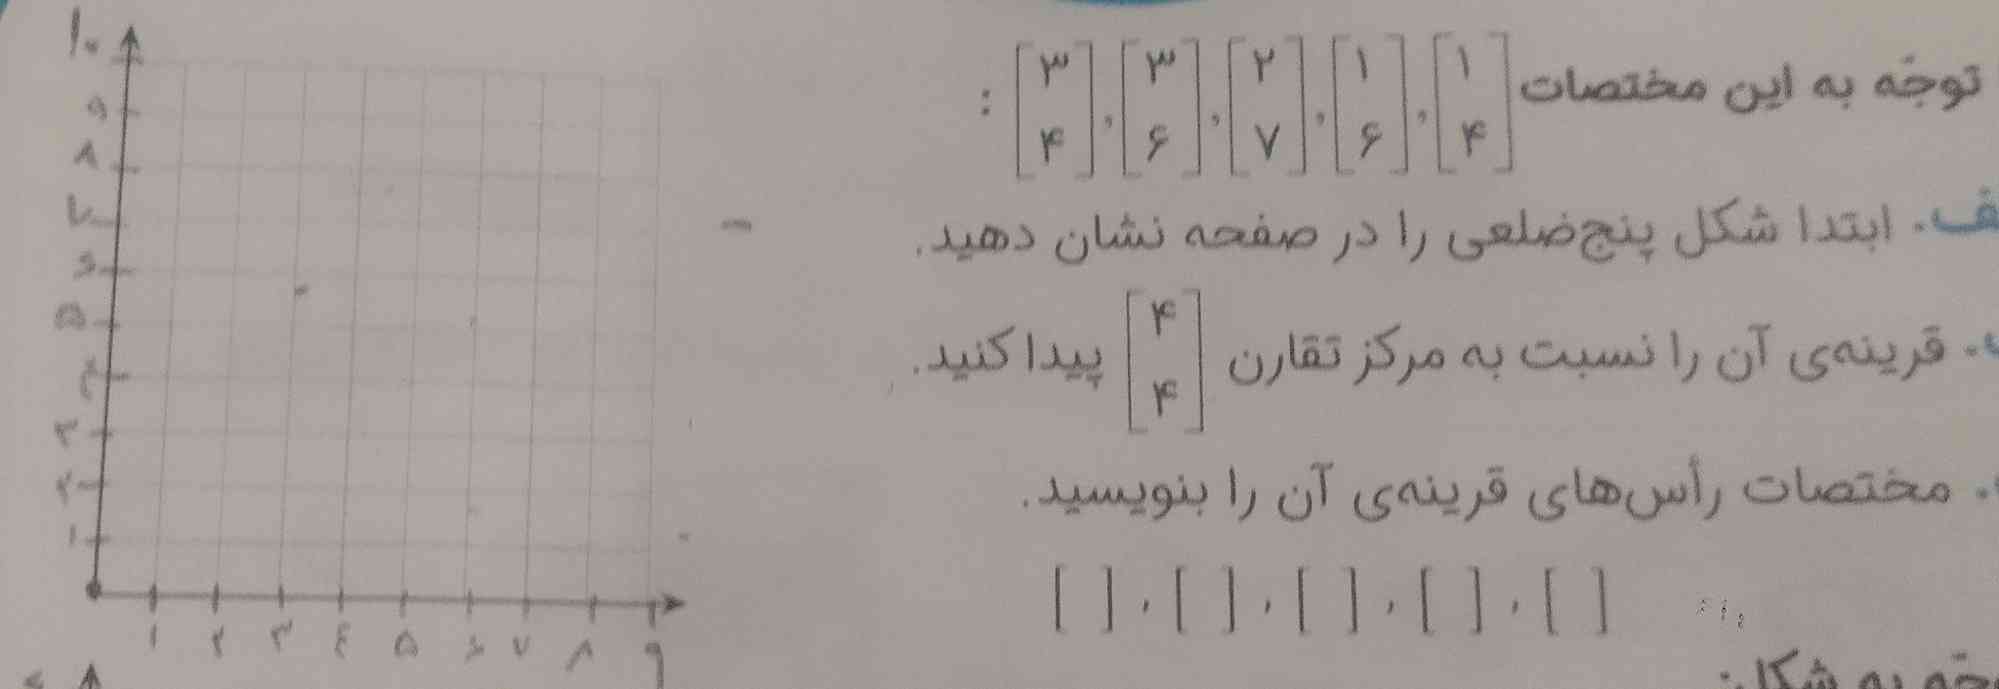 توجّه به این مختصات [۱ ۴] , [۱ ۶] , [۲ ۷] , [۳ ۶] , [۳ ۴] :
ف. ابتدا شکل پنج‌ضلعی را در صفحه نشان دهید.
. قرینه‌ی آن را نسبت به مرکز تقارن [۴ ۴] پیدا کنید.
. مختصات رأس‌های قرینه‌ی آن را بنویسید.
[ ] , [ ] , [ ] , [ ] , [ ]
به شکل:
۱۰
۹
۸
۷
۶
۵
۴
۳
۲
۱
۱ ۲ ۳ ۴ ۵ ۶ ۷ ۸ ۹